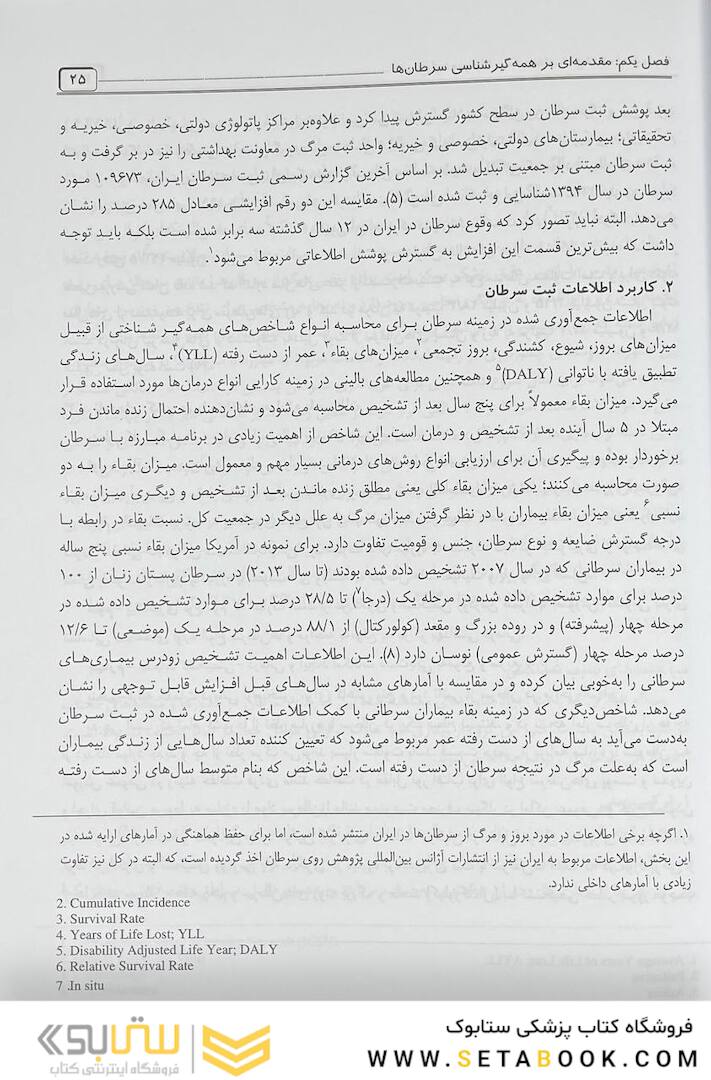 فصل یکم: مقدمه‌ای بر همه‌گیرشناسی سرطان‌ها
۲۵
بعد پوشش ثبت سرطان در سطح کشور گسترش پیدا کرد و علاوه‌بر مراکز پاتولوژی دولتی، خصوصی، خیریه و
تحقیقاتی؛ بیمارستان‌های دولتی، خصوصی و خیریه؛ واحد ثبت مرگ در معاونت بهداشتی را نیز در بر گرفت و به
ثبت سرطان مبتنی بر جمعیت تبدیل شد. بر اساس آخرین گزارش رسمی ثبت سرطان ایران، ۱۰۹۶۷۳ مورد
سرطان در سال ۱۳۹۴شناسایی و ثبت شده است (۵). مقایسه این دو رقم افزایشی معادل ۲۸۵ درصد را نشان
می‌دهد. البته نباید تصور کرد که وقوع سرطان در ایران در ۱۲ سال گذشته سه برابر شده است بلکه باید توجه
داشت که بیش‌ترین قسمت این افزایش به گسترش پوشش اطلاعاتی مربوط می‌شود۱.
۲. کاربرد اطلاعات ثبت سرطان
اطلاعات جمع‌آوری شده در زمینه سرطان برای محاسبه انواع شاخص‌های همه‌گیر شناختی از قبیل
میزان‌های بروز، شیوع، کشندگی، بروز تجمعی۲، میزان‌های بقاء۳، عمر از دست رفته (YLL)۴، سال‌های زندگی
تطبیق یافته با ناتوانی (DALY)۵ و همچنین مطالعه‌های بالینی در زمینه کارایی انواع درمان‌ها مورد استفاده قرار
می‌گیرد. میزان بقاء معمولاً برای پنج سال بعد از تشخیص محاسبه می‌شود و نشان‌دهنده احتمال زنده ماندن فرد
مبتلا در ۵ سال آینده بعد از تشخیص و درمان است. این شاخص از اهمیت زیادی در برنامه مبارزه با سرطان
برخوردار بوده و پیگیری آن برای ارزیابی انواع روش‌های درمانی بسیار مهم و معمول است. میزان بقاء را به دو
صورت محاسبه می‌کنند؛ یکی میزان بقاء کلی یعنی مطلق زنده ماندن بعد از تشخیص و دیگری میزان بقاء
نسبی۶ یعنی میزان بقاء بیماران با در نظر گرفتن میزان مرگ به علل دیگر در جمعیت کل. نسبت بقاء در رابطه با
درجه گسترش ضایعه و نوع سرطان، جنس و قومیت تفاوت دارد. برای نمونه در آمریکا میزان بقاء نسبی پنج ساله
در بیماران سرطانی که در سال ۲۰۰۷ تشخیص داده شده بودند (تا سال ۲۰۱۳) در سرطان پستان زنان از ۱۰۰
درصد برای موارد تشخیص داده شده در مرحله یک (درجا۷) تا ۲۸/۵ درصد برای موارد تشخیص داده شده در
مرحله چهار (پیشرفته) و در روده بزرگ و مقعد (کولورکتال) از ۸۸/۱ درصد در مرحله یک (موضعی) تا ۱۲/۶
درصد مرحله چهار (گسترش عمومی) نوسان دارد (۸). این اطلاعات اهمیت تشخیص زودرس بیماری‌های
سرطانی را به‌خوبی بیان کرده و در مقایسه با آمارهای مشابه در سال‌های قبل افزایش قابل توجهی را نشان
می‌دهد. شاخص‌دیگری که در زمینه بقاء بیماران سرطانی با کمک اطلاعات جمع‌آوری شده در ثبت سرطان
به‌دست می‌آید به سال‌های از دست رفته عمر مربوط می‌شود که تعیین کننده تعداد سال‌هایی از زندگی بیماران
است که به‌علت مرگ در نتیجه سرطان از دست رفته است. این شاخص که بنام متوسط سال‌های از دست رفته
۱. اگرچه برخی اطلاعات در مورد بروز و مرگ از سرطان‌ها در ایران منتشر شده است، اما برای حفظ هماهنگی در آمارهای ارایه شده در
این بخش، اطلاعات مربوط به ایران نیز از انتشارات آژانس بین‌المللی پژوهش روی سرطان اخذ گردیده است، که البته در کل نیز تفاوت
زیادی با آمارهای داخلی ندارد.
2. Cumulative Incidence
3. Survival Rate
4. Years of Life Lost; YLL
5. Disability Adjusted Life Year; DALY
6. Relative Survival Rate
7 .In situ
فروشگاه کتاب پزشکی ستابوک
WWW.SETABOOK.COM
ستابوک
فروشگاه اینترنتی کتاب